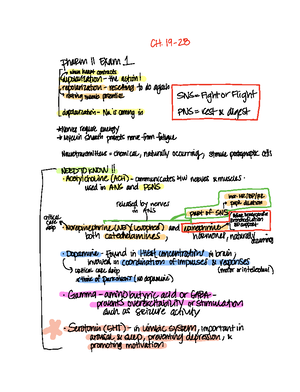 CH. 19-28
Pharm II Exam 1
when heart contracts
depolarization - the action!
repolarization - resetting to do again
resting needs potential
depolarization - Na is coming in
SNS = Fight or Flight
PNS = rest & digest
Nerves require energy
Myelin sheath protects nerve from fatigue
Neurotransmitters = chemical, naturally occurring, stimulate postsynaptic cells
NEED TO KNOW!!
- Acetylcholine (ACh) - communicates btw nerves & muscles
used in ANS and PSNS
released by nerves
in ANS
part of SNS
critical
care
drip
Norepinephrine (NE) (Levophed) and epinephrine
both catecholamines
hormonal, naturally
occurring
- Dopamine - Found in high concentrations in brain,
involved in coordination of impulses & responses
(motor or intellectual)
critical care drip
- Gamma - aminobutyric acid or GABA -
prevents overexcitability or stimulation
such as seizure activity
- Serotonin (5HT) - in limbic system, important in
arousal & sleep, preventing depression, &
promoting motivation